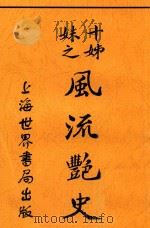 十姊
妹之
風流艷史
上海世界書局出版